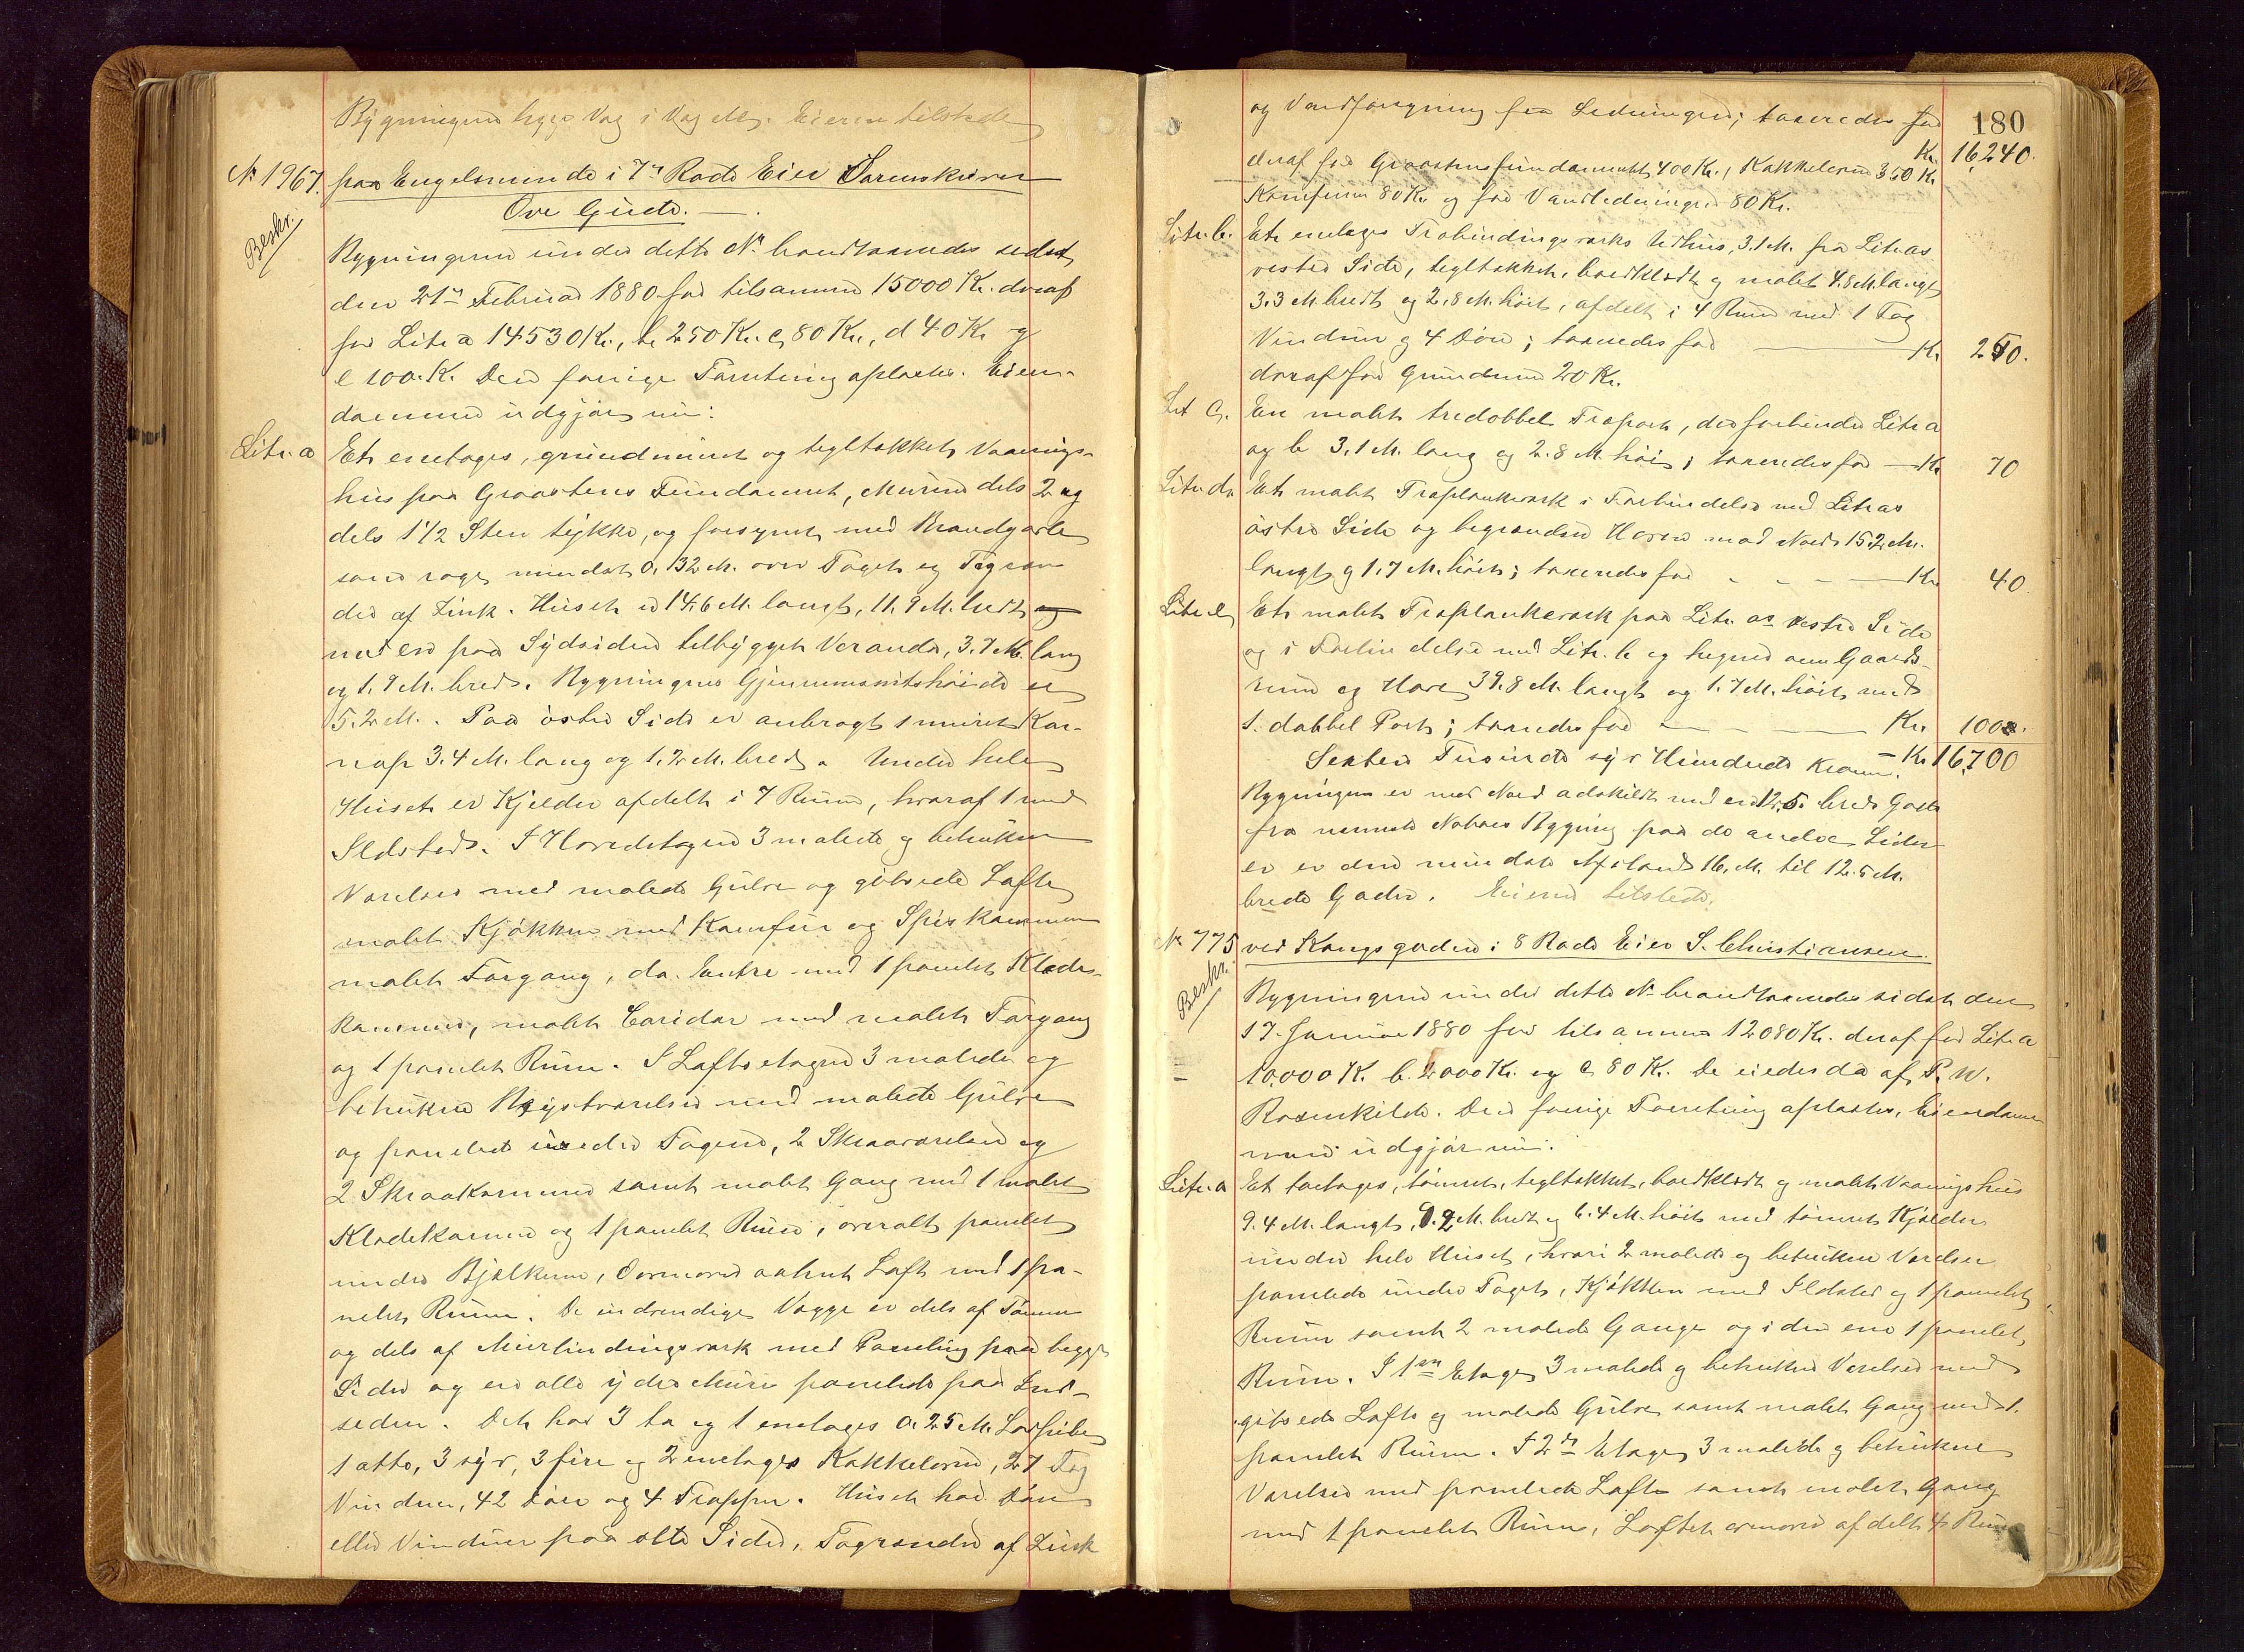 Bygningerne ligge Væg i Væg etc. Eieren tilstede
No 1967. paa Engelsminde i 7de Rode Eier Sorenskriver
Ove Gude.
Beskr.
Bygningerne under dette No brandtaxeredes sidst
den 21de Februar 1880 for tilsammen 15000 Kr. deraf
for Litr. a 14530 Kr., b 250 Kr. c 80 Kr., d 40 Kr. og
e 100. Kr. Den forrige Forretning aflæstes. Eien-
dommen udgjør nu:
Litr. a Et enetages, grundmuret og tegltækket Vaanings-
hus paa Graastens Fundament, Murene dels 2 og
dels 1 1/2 Sten tykke, og forsynet med Brandgavle
som rage mindst 0.132 M. over Taget og Tagren-
der af Zink. Huset er 14.6 M. langt, 11.9 M. bredt
med en paa Sydsiden tilbygget Veranda, 3.7 M. lang
og 1.9 M. bred. Bygningens Gjennemsnitshøide er
5.2 M. Paa østre Side er anbragt 1 muret Kar-
nap 3.4 M. lang og 1.2 M. bred. Under hele
Huset er Kjelder afdelt i 7 Rum, hvoraf 1 med
Ildsted. I Hovedetagen 3 malede og betrukne
Værelser med malede Gulve og gibsede Lofter
malet Kjøkken med Komfur og Spiskammer
malet Forgang, do. Entre med 1 panelet Klædes-
kammer, malet Coridor med malet Forgang
og 1 panelet Rum. I Loftsetagen 3 malede og
betrukne Kvistværelser med malede Gulve
og panelet under Tagene, 2 Skraaværelser og
2 Skraakammere samt malet Gang med 1 malet
Klædekammer og 1 panelet Rum, overalt panelet
under Bjælkerne, Ovenover aabent Loft med 1 pa-
nelet Rum. De indvendige Vægge er dels af Tømmer
og dels af Murbindingsværk med Paneling paa begge
Sider og ere alle ydre Mure panelede paa Ind-
siden. Det har 3 to og 1 enetages 0.25 M. Løbpiber
1 otte, 3 syv, 3 fire og 2 enetages Kakkelovne, 27 Fag
Vinduer, 42 Døre og 4 Trapper. Huset har Døre
eller Vinduer paa alle Sider, Tagrender af Zink
180
og Vandforsyning fra Ledningen; taxeredes for
Kr. 16,240.
deraf for Graastensfundamentet 400 Kr., Kakkelovne 350 Kr.
Komfuren 80 Kr. og for Vandledningen 80 Kr.
Litr. b. Et enetages Træbindingsværks Udhus, 3.1 M. fra Litr. as
vestre Side, tegltækket, bordklædt og malet 4.8 M. langt
3.3 M. bredt og 2.8 M. høit, afdelt i 4 Rum med 1 Fag
Vinduer og 4 Døre; taxeredes for Kr. 250.
deraf for Grundmur 20 Kr.
Lit c. En malet tredobbel Træport, der forbinder Litr. a
og b 3.1 M. lang og 2.8 M. høi; taxeredes for Kr. 70
Litr. d. Et malet Træplankeværk i Forbindelse med Litr. as
østre Side og begrændser Haven mod Nord 15.2 M.
langt og 1.7 M. høit; taxeredes for Kr. 40
Litr. e Et malet Træplankeværk paa Litr. as vestre Side
og i Forbindelse med Litr. b og hegner om Gaards-
rum og Have 39.8 M. langt og 1.7 M. høit, med
1. dobbel Port; taxeredes for Kr. 100.
Sexten Tusinde syv Hundrede Kroner. Kr. 16,700
Bygningen er mod Nord adskildt med en 12.5. bred Gade
fra nærmeste Naboes Bygning paa de andre Sider
er den mindste Afstand 16. M. til 12.5 M.
brede Gader. Eieren tilstede.
No 775 ved Kongsgaden i 8 Rode Eier S. Christiansen.
Beskr.
Bygningerne under dette No brandtaxeredes sidst den
17. Januar 1880 for tilsammen 12080 Kr. deraf for Litr. a
10.000 K. b. 2000 Kr. og c 80 Kr. De eiedes da af P. W.
Rosenkilde. Den forrige Forretning aflæstes, Eiendom-
men udgjør nu:
Litr. a Et toetages, tømret, tegltækket, bordklædt og malet Vaaningshus
9.4 M. langt, 9.2 M. bredt og 6.4 M. høit med tømret Kjælder
under hele Huset, hvori 2 malede og betrukne Værelser
panelede under Taget, Kjøkken med Ildsted og 1 panelet
Rum samt 2 malede Gange og i den ene 1 panelet
Rum. I 1ste Etage 3 malede og betrukne Værelser med
gibsede Lofte og malede Gulve samt malet Gang med 1.
panelet Rum. I 2den Etage 3 malede og betrukne
Værelser med panelede Lofte samt malet Gang
med 1 panelet Rum, Loftet ovenover afdelt 4 Rum